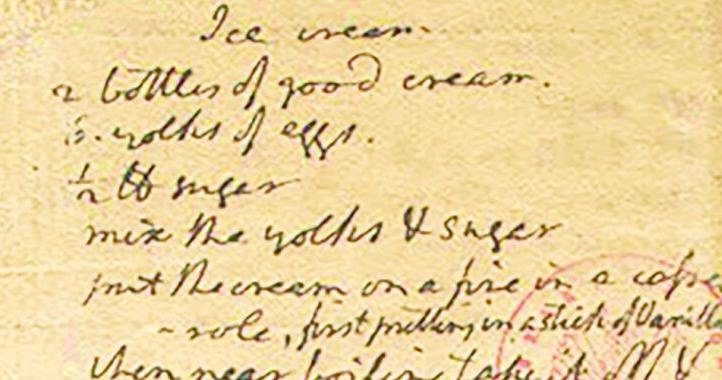 Ice cream.
2 bottles of good cream.
6. yolks of eggs.
½ ℔ sugar
mix the yolks & sugar
put the cream on a fire in a casse
-role, first putting in a stick of Vanilla
when near boiling take it off &